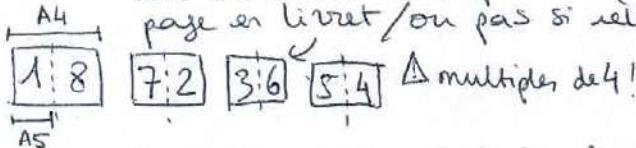 A4 page en livret / ou pas si
1 8 7 2 3 6 5 4 ⚠ multiples de 4 !
A5